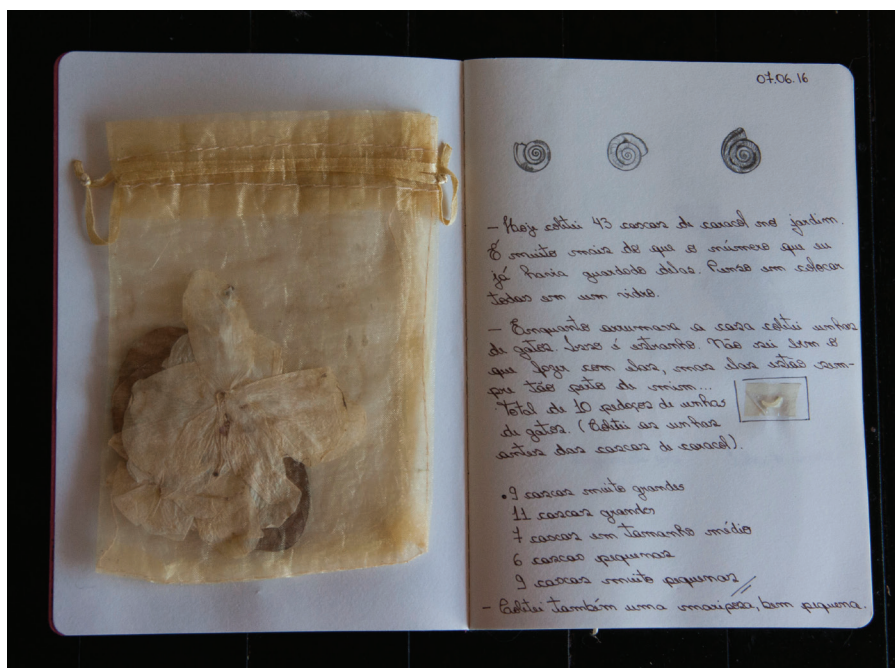 07.06.16
- Hoje coletei 43 cascas de caracol no jardim.
É muito mais do que o número que eu
já havia guardado delas. Penso em colocar
todas em um vidro.
- Enquanto arrumava a casa coletei unhas
de gatos. Isso é estranho. Não sei bem o
que fazer com elas, mas elas estão sem-
pre tão perto de mim...
Total de 10 pedaços de unhas
de gatos. (Coletei as unhas
antes das cascas de caracol).
• 9 cascas muito grandes
11 cascas grandes
7 cascas em tamanho médio
6 cascas pequenas
9 cascas muito pequenas
- Coletei também uma mariposa, bem pequena.